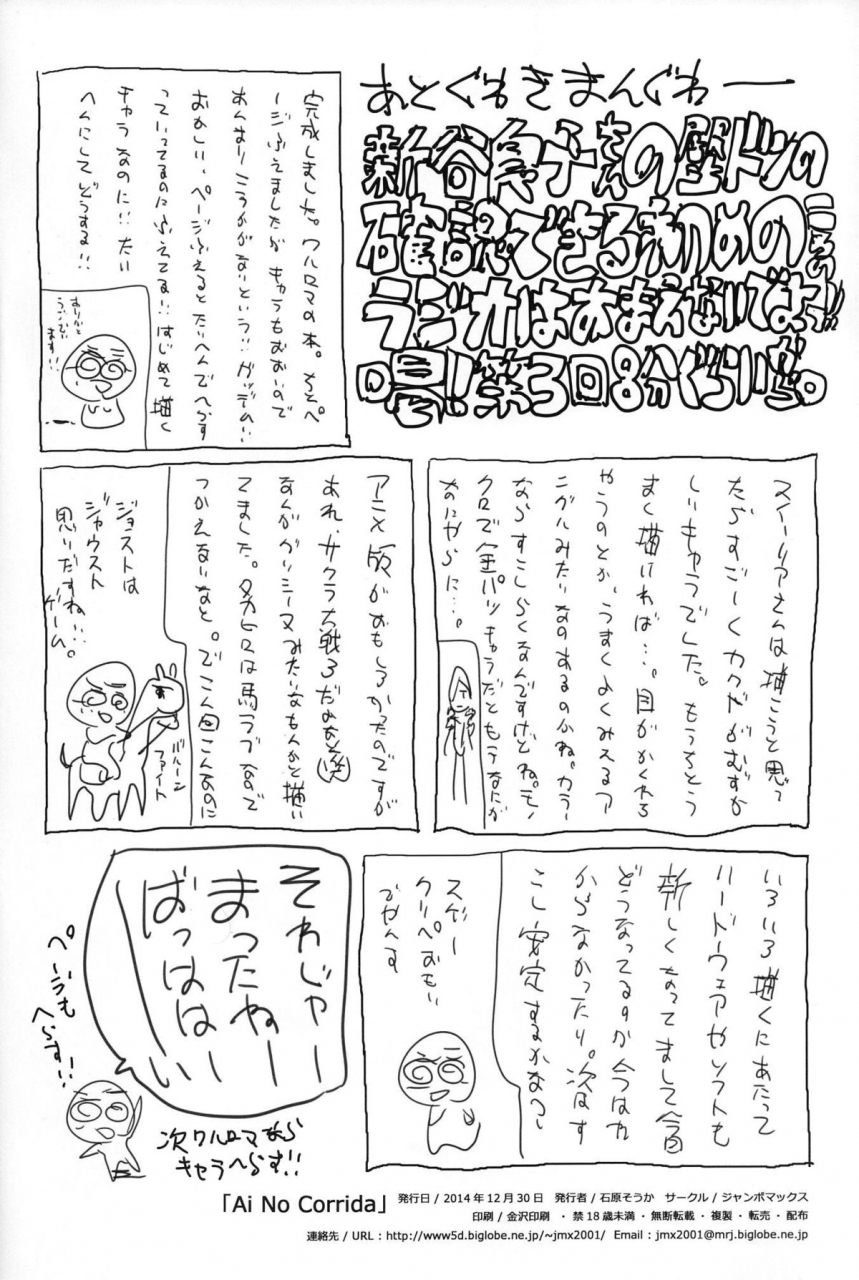 あとぐわきまんぐわー
新谷良子さんの壁ドンの
確認できる初めのこえの
ラジオはあまえないでよっ!!
喝!!第3回8分ぐらいかな。
完成しました。ワルロマの本。ちそペ
ージふえましたが キャラもおおいので
あんまりころがないという!! ガッデム!!
おかしい、ページふえるとたいへんでへらす
っていってるのにふえてる!! はじめて描く
キャラなのに!! たい
へんにしてどうする!!
ありがと
うごでい
ます!!
スイーリアさんは描こうと思っ
たらすごーくカクゲがむずか
しいキャラでした。もうちょう
まく描ければ…。目がかくれる
やうのとか、うまくよくみえるア
ングルみたいなのあるのかね。カラー
ならすこしらくなんですけどね。モノ
クロで金パツキャラだともうなにが
なにやらに…。
アニメ版がおもしろかったのですが
あれ、サクラ大戦3だよな(笑)
なんかグリシーヌみたいなもんかと描い
てました。タカヒロは馬ラブなので
つかえないなと。でこん回こんなのに
ジョストは
ジャウスト
思いだすね!!
ゲーム。
バルーン
ファイト
いろいろ描くにあたって
ハードウェアやソフトも
新しくなってまして今回
どうなってるか今はわ
からなかったり。次はす
こし安定するかなっ
スゲー
クリペおもい
でやんす
それじゃー
まったねー
ばっははーい
ページも
へらす!!
次ワルロマなら
キャラへらす!!
「Ai No Corrida」 発行日 / 2014年12月30日 発行者 / 石原そうか サークル / ジャンボマックス
印刷 / 金沢印刷 ・禁18歳未満 ・無断転載 ・複製 ・転売 ・配布
連絡先 / URL : http://www5d.biglobe.ne.jp/~jmx2001/ Email : jmx2001@mrj.biglobe.ne.jp